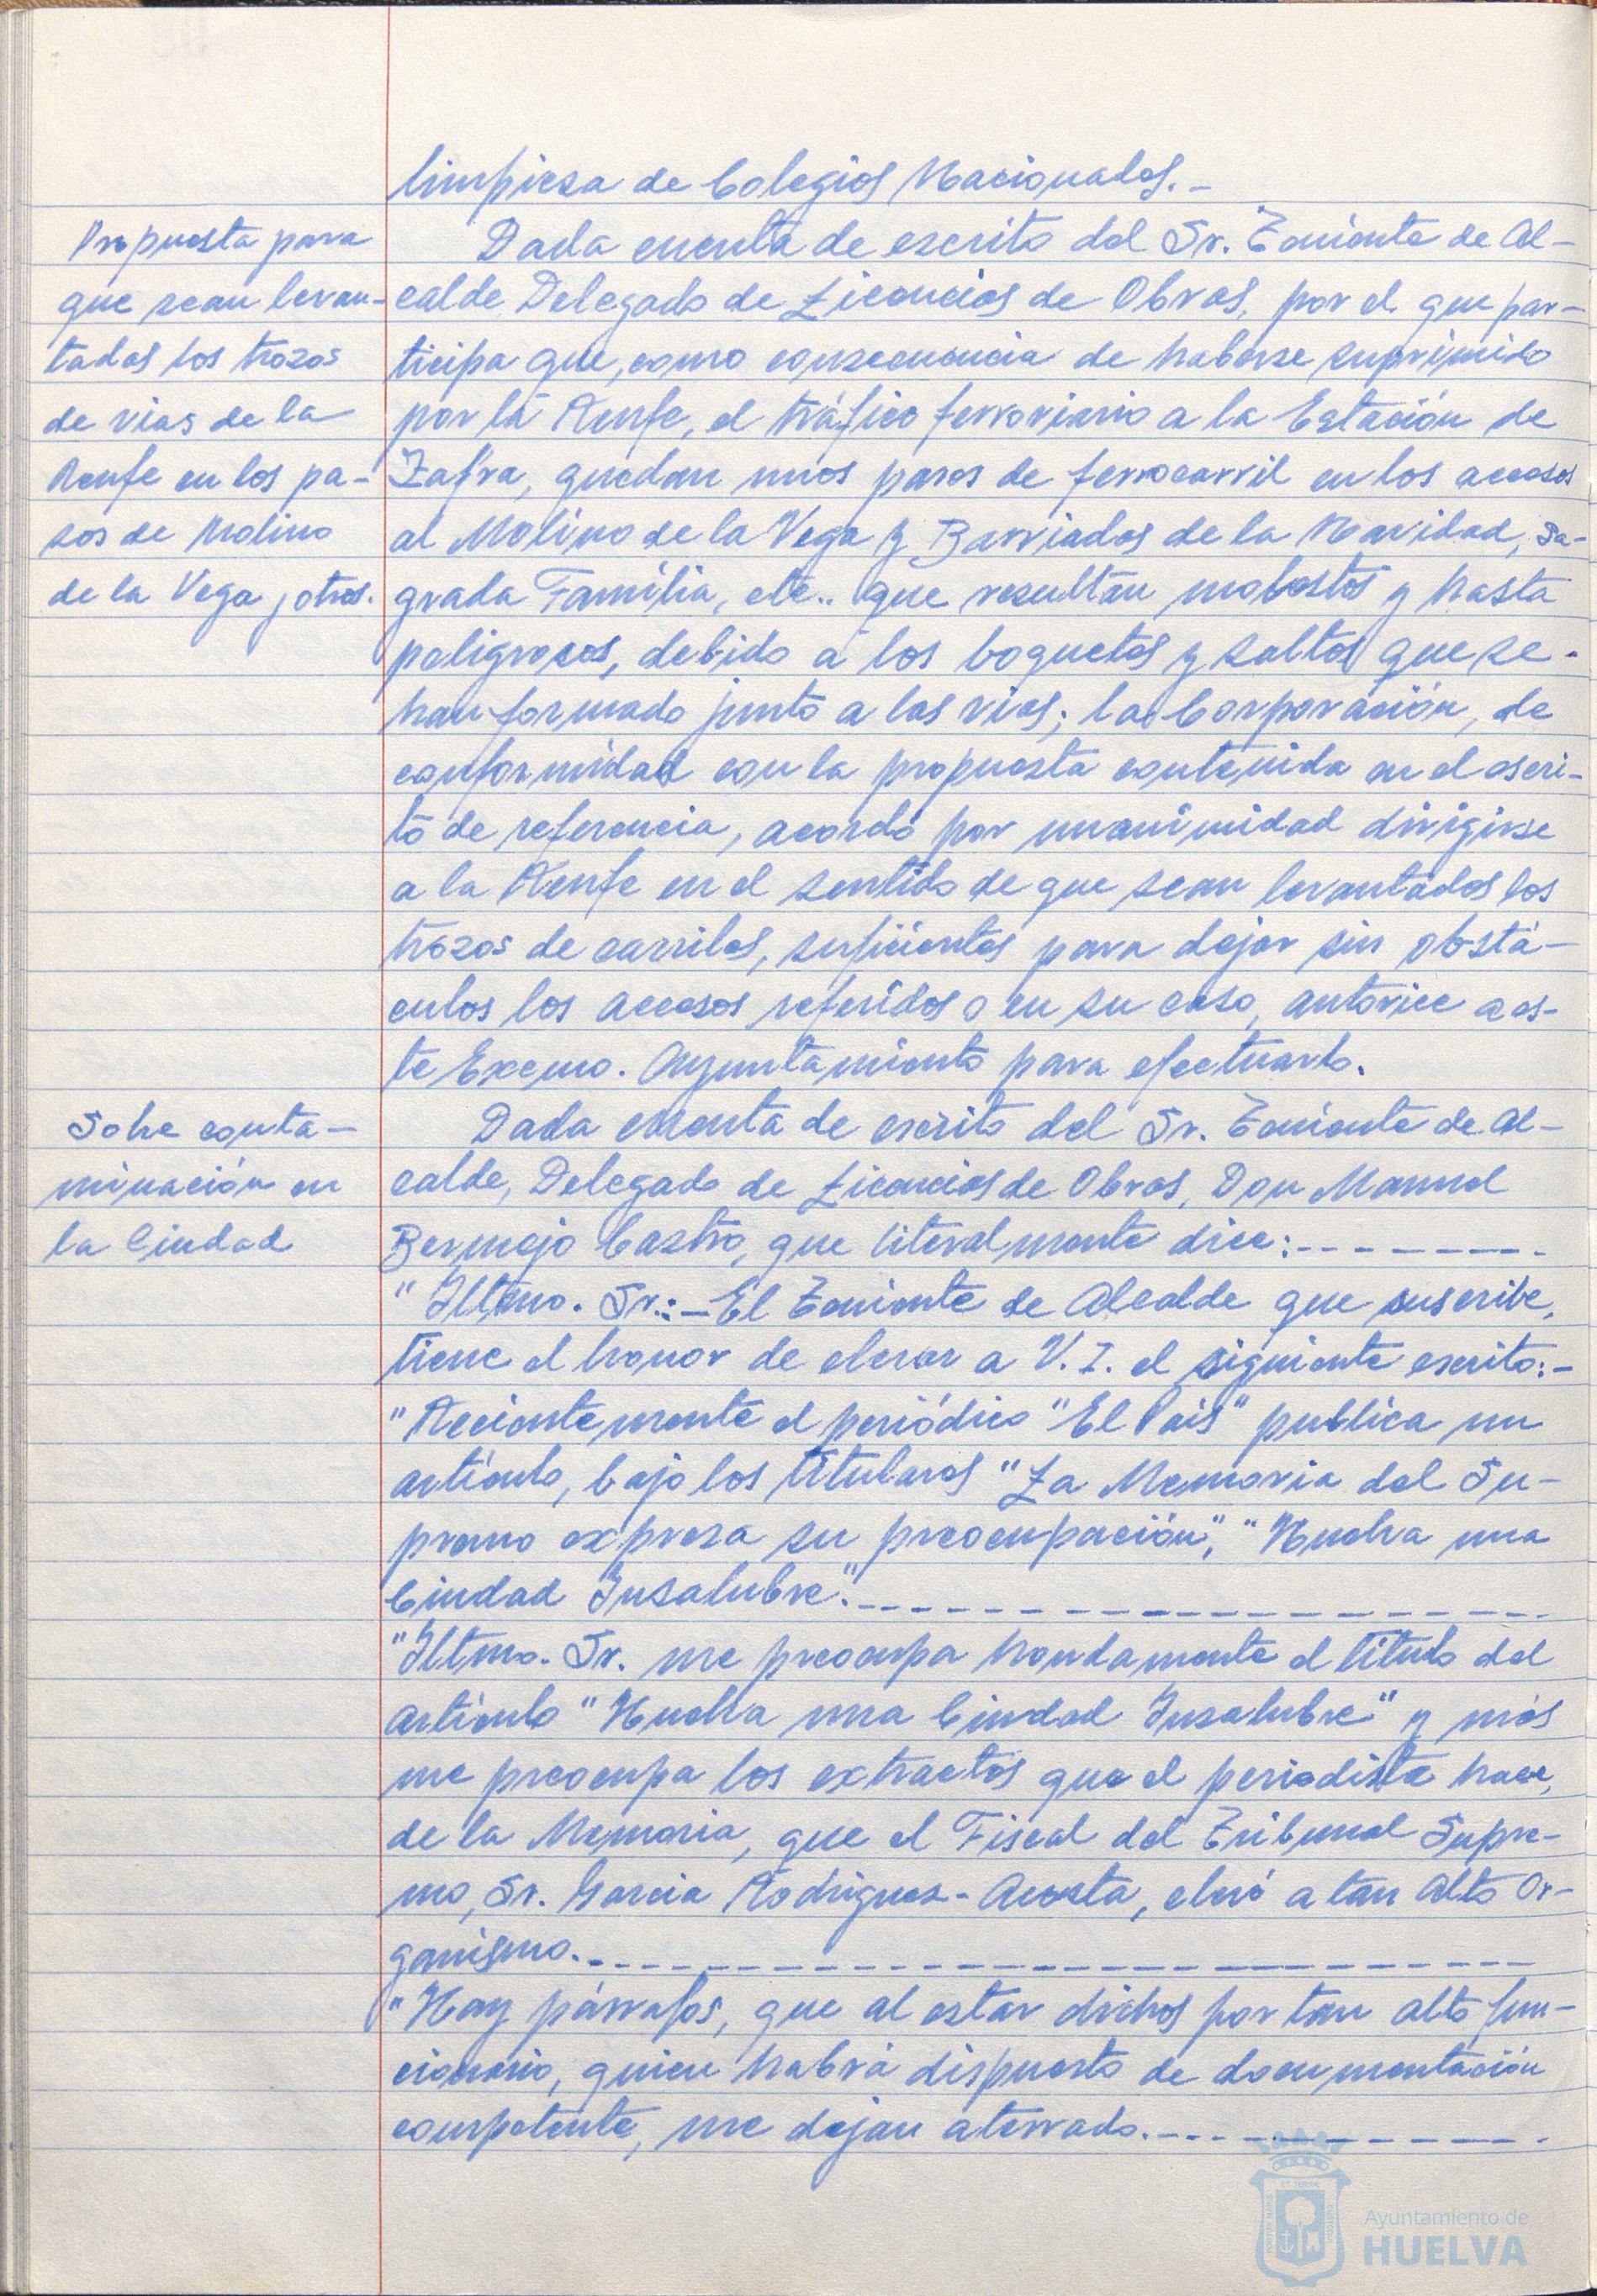 limpieza de Colegios Nacionales.-
Propuesta para
que sean levan-
tados los trozos
de vias de la
Renfe en los pa-
sos de Molino
de la Vega y otros.
Dada cuenta de escrito del Sr. Teniente de Al-
calde Delegado de Licencias de Obras, por el que par-
ticipa que, como consecuencia de haberse suprimido
por la Renfe, el tráfico ferroviario a la Estación de
Zafra, quedan unos pasos de ferrocarril en los accesos
al Molino de la Vega y Barriadas de la Navidad, Sa-
grada Familia, etc.. que resultan molestos y hasta
peligrosos, debido a los boquetes y saltos que se
han formado junto a las vias; la Corporación, de
conformidad con la propuesta contenida en el escri-
to de referencia, acordó por unanimidad dirigirse
a la Renfe en el sentido de que sean levantados los
trozos de carriles, suficientes para dejar sin obstá-
culos los accesos referidos o en su caso, autorice a es-
te Excmo. Ayuntamiento para efectuarlo.
Sobre conta-
minación en
la Ciudad
Dada cuenta de escrito del Sr. Teniente de Al-
calde, Delegado de Licencias de Obras, Don Manuel
Bermejo Castro, que literalmente dice:--------
"Iltmo. Sr.:-El Teniente de Alcalde que suscribe,
tiene el honor de elevar a V. I. el siguiente escrito:-
"Recientemente el periódico "El Pais" publica un
artículo, bajo los titulares "La Memoria del Su-
premo expresa su preocupación", "Huelva una
Ciudad Insalubre".-----------------
"Iltmo. Sr. me preocupa hondamente el título del
artículo "Huelva una Ciudad Insalubre" y más
me preocupa los extractos que el periodista hace,
de la Memoria, que el Fiscal del Tribunal Supre-
mo, Sr. Garcia Rodriguez-Acosta, elevó a tan Alto Or-
ganismo.------------------------
"Hay párrafos, que al estar dichos por tan alto fun-
cionario, quien habrá dispuesto de documentación
competente, me dejan aterrado.----------
Ayuntamiento de
HUELVA